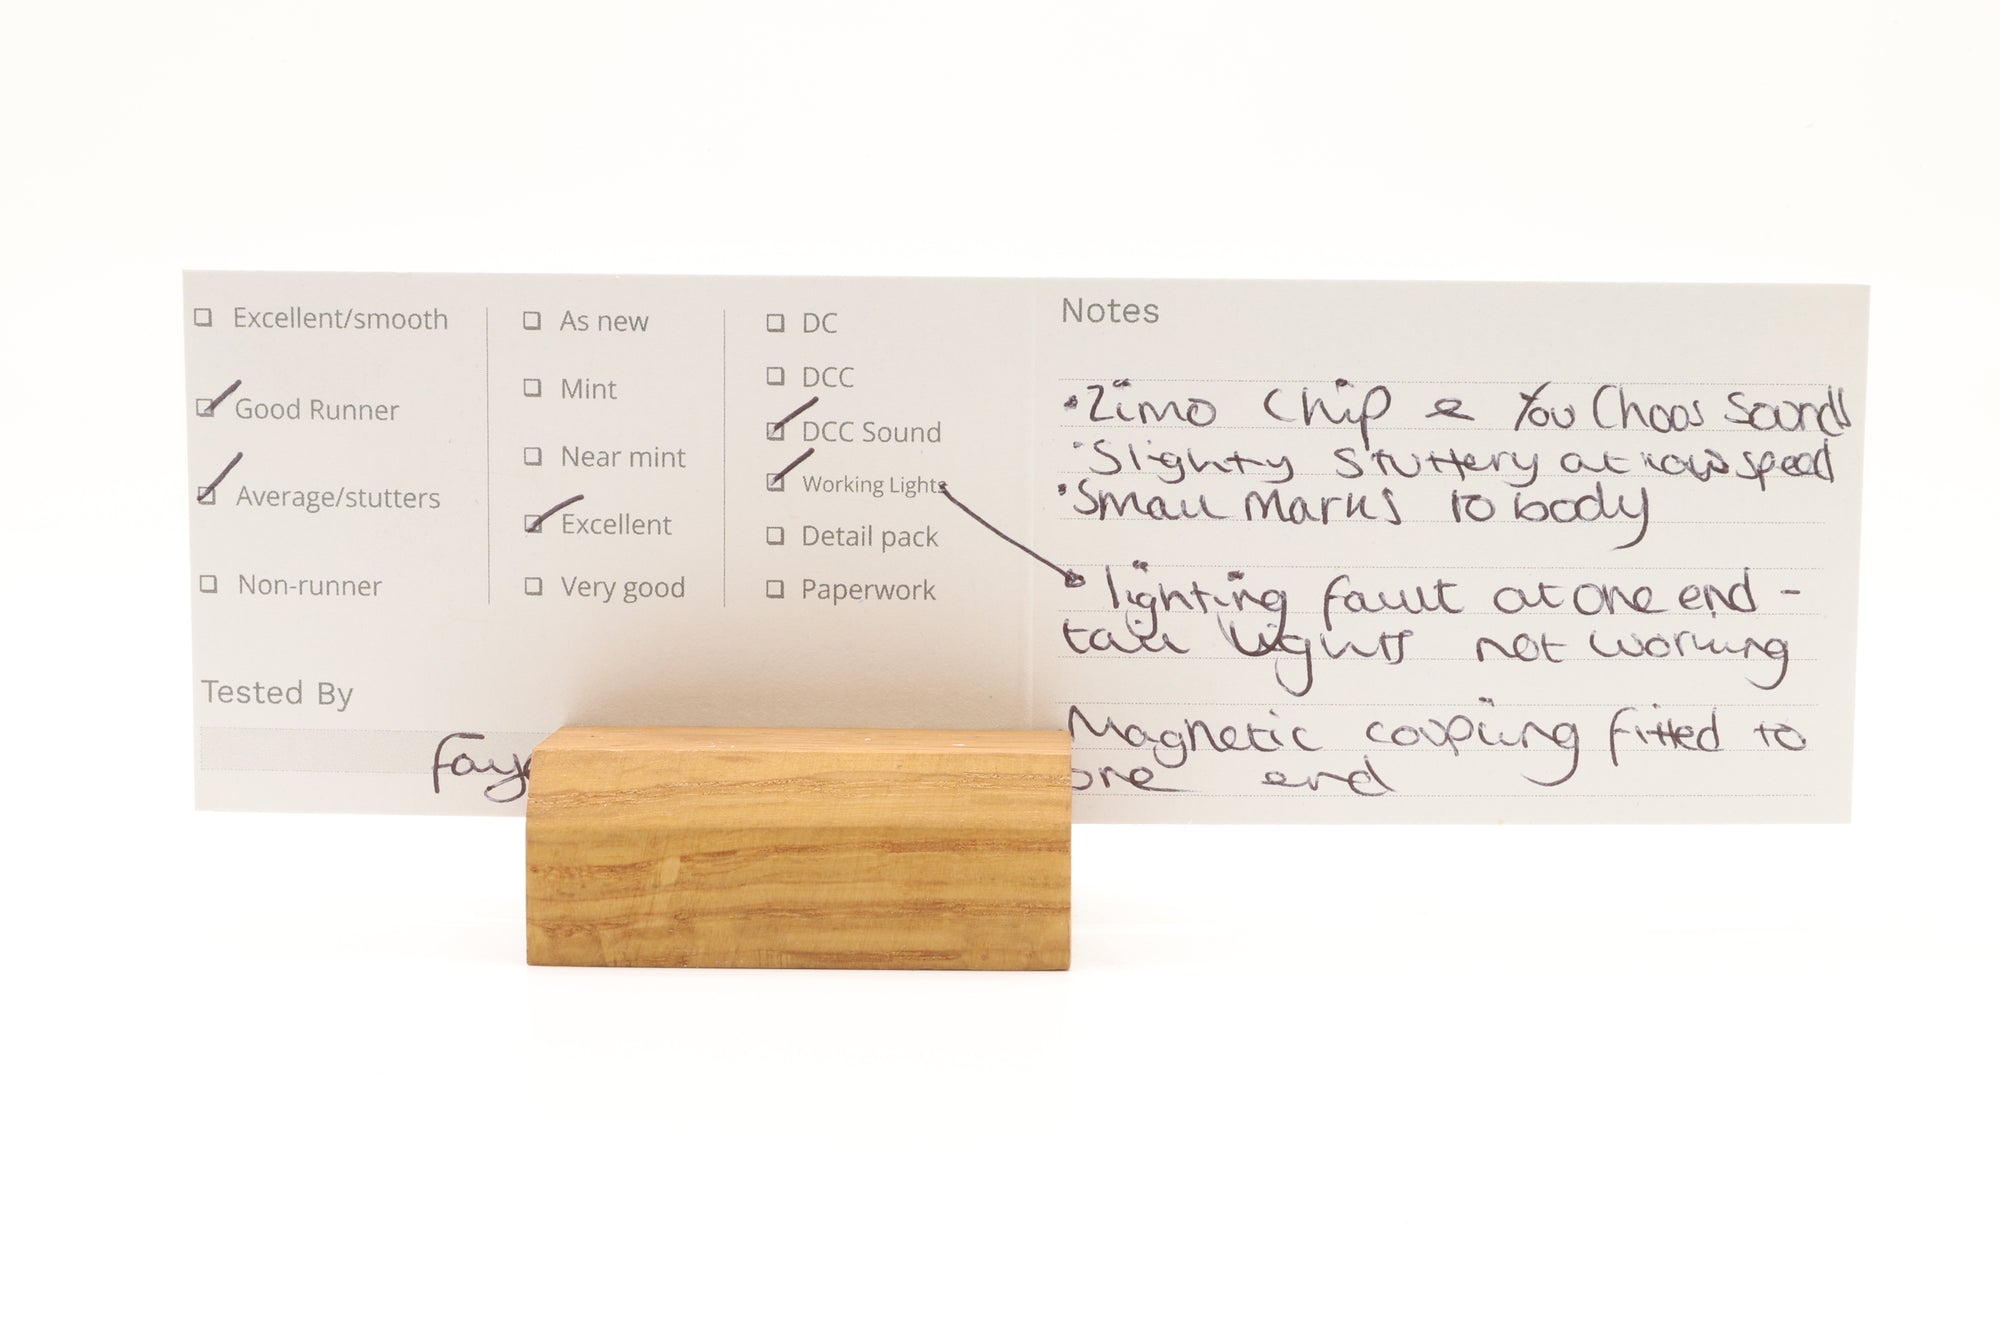 Excellent/smooth
Good Runner
Average/stutters
Non-runner
As new
Mint
Near mint
Excellent
Very good
DC
DCC
DCC Sound
Working Lights
Detail pack
Paperwork
Tested By
Faye
Notes
• Zimo Chip & You Choos Sounds
• Slighty Stuttery at low speed
• Small Marks to body
• lighting fault at one end -
tail lights not working
Magnetic coupling fitted to
one end